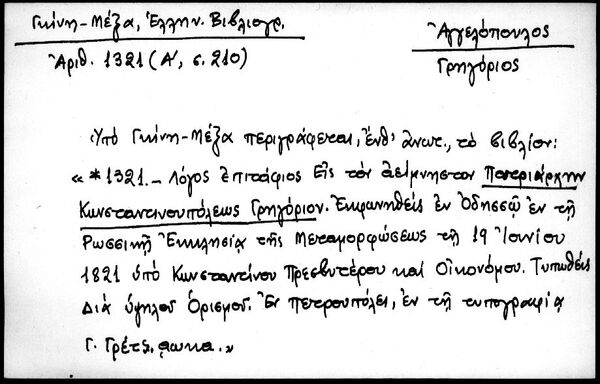 Γκίνη-Μέξα, Ἑλλην. Βιβλιογρ.
Ἀριθ. 1321 (Α', σ. 210)
Ἀγγελόπουλος
Γρηγόριος
Ὑπό Γκίνη-Μέξα περιγράφεται, ἔνθ' ἀνωτ., τό βιβλίον:
«*1321.- Λόγος ἐπιτάφιος Εἰς τόν ἀείμνηστον Πατριάρχην
Κωνσταντινουπόλεως Γρηγόριον. Ἐκφωνηθείς ἐν Ὀδησσῷ ἐν τῇ
Ρωσσικῇ Ἐκκλησίᾳ τῆς Μεταμορφώσεως τῇ 19 Ἰουνίου
1821 ὑπό Κωνσταντίνου Πρεσβυτέρου καί Οἰκονόμου. Τυπωθείς
Διά ὑψηλοῦ Ὁρισμοῦ. Ἐν Πετρουπόλει, ἐν τῇ τυπογραφίᾳ
Γ. Γρέτς, αωκα.»